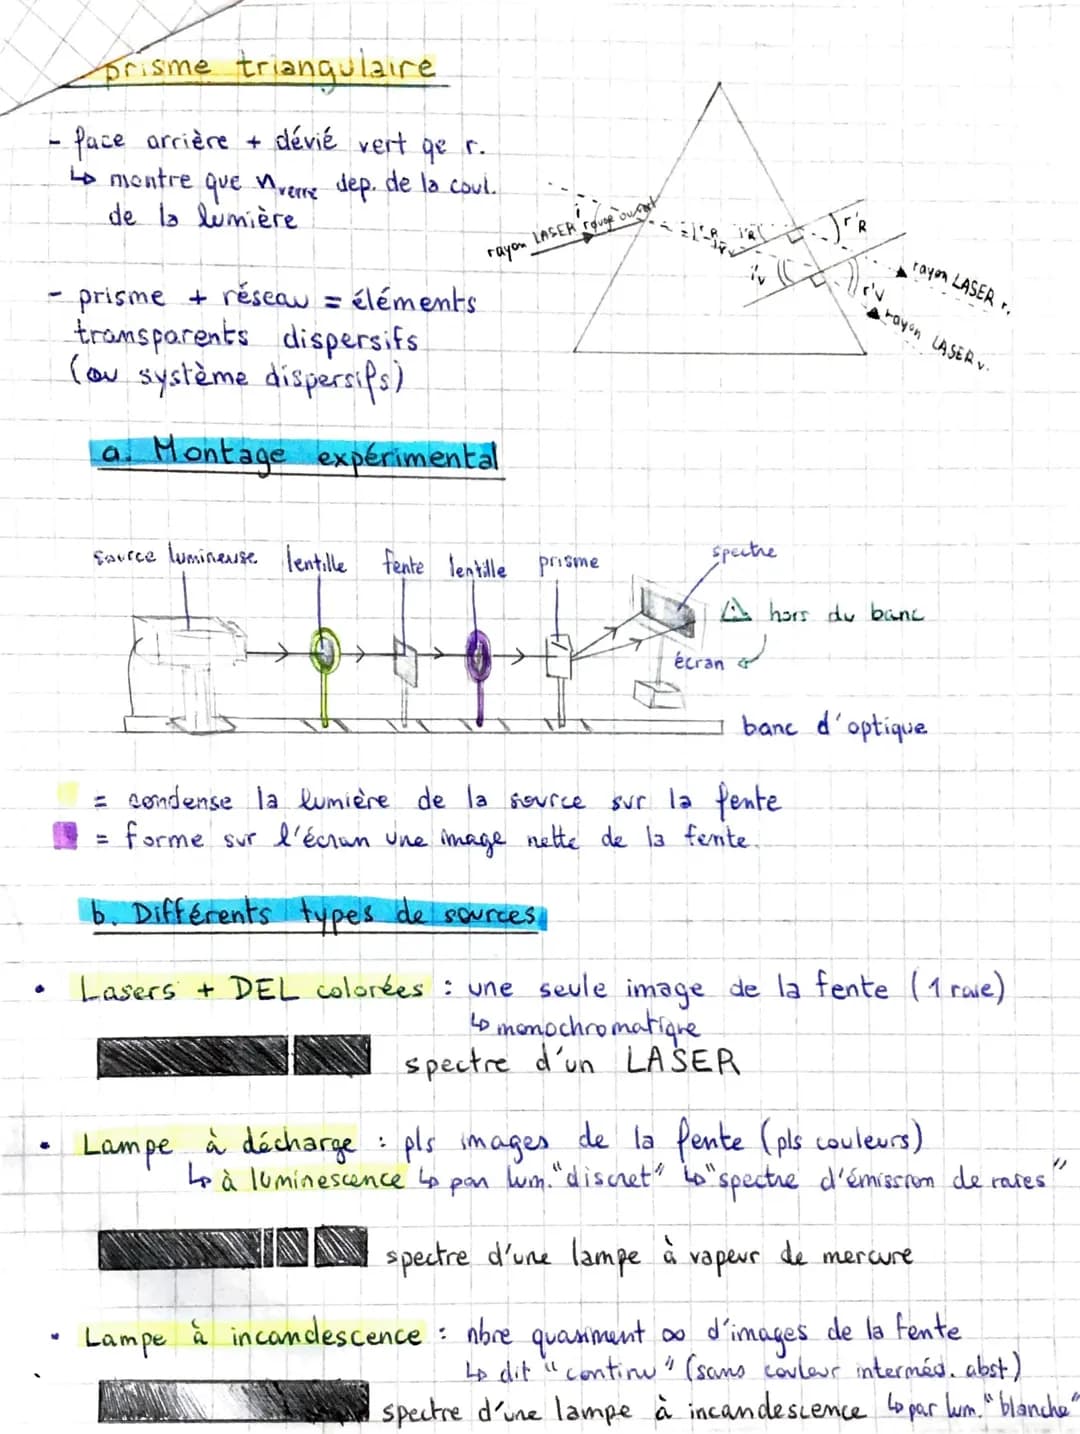 prisme triangulaire
- face arrière + dévié vert qe r.
↳ montre que n verre dep. de la coul.
de la lumière
i
rayon LASER rouge ou vert
i'R
r'R
i'v
r'v
rayon LASER r.
rayon LASER v.
- prisme + réseau = éléments
transparents dispersifs
(ou système dispersifs)
a. Montage expérimental
source lumineuse lentille fente lentille prisme spectre
⚠ hors du banc
écran
banc d'optique
= condense la lumière de la source sur la fente
= forme sur l'écran une image nette de la fente.
b. Différents types de sources
• Lasers + DEL colorées : une seule image de la fente (1 raie)
↳ monochromatique
spectre d'un LASER
• Lampe à décharge : pls images de la fente (pls couleurs)
↳ à luminescence ↳ par lum. "discret" ↳ "spectre d'émission de raies"
spectre d'une lampe à vapeur de mercure
• Lampe à incandescence : nbre quasiment ∞ d'images de la fente
↳ dit "continu" (sans couleur interméd. abst)
spectre d'une lampe à incandescence ↳ par lum. "blanche"